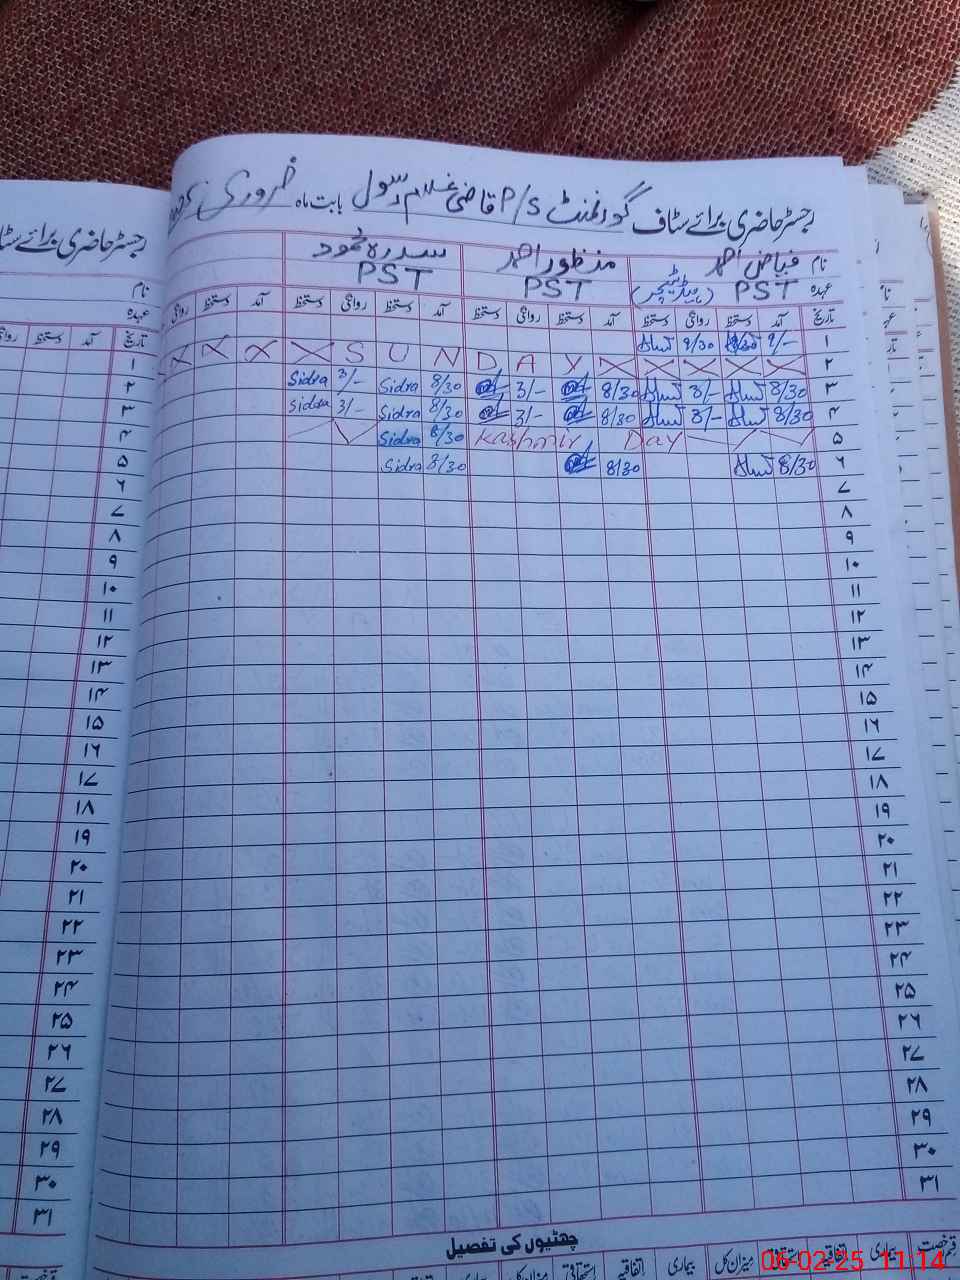 رجسٹر حاضری برائے سٹاف گورنمنٹ P/S قاضی غلام رسول بابت ماہ فروری
نام فیاض احمد منظور احمد سدرہ محمود
عہدہ PST (ہیڈ ٹیچر) PST PST
تاریخ آمد دستخط روانگی دستخط آمد دستخط روانگی دستخط آمد دستخط روانگی دستخط آمد روانگی
۱ 9/- 9/30
۲ X X X X X SUNDAY X X X X
۳ 8/30 3/- 8/30 3/- 8/30 Sidra 3/- Sidra
۴ 8/30 3/- 8/30 3/- 8/30 Sidra 3/- Sidra
۵ Kashmir Day 8/30 Sidra
۶ 8/30 8/30 8/30 Sidra
۷
۸
۹
۱۰
۱۱
۱۲
۱۳
۱۴
۱۵
۱۶
۱۷
۱۸
۱۹
۲۰
۲۱
۲۲
۲۳
۲۴
۲۵
۲۶
۲۷
۲۸
۲۹
۳۰
۳۱
چھٹیوں کی تفصیل
قسم رخصت بیماری اتفاقیہ استحقاقی میزان کل بیماری اتفاقیہ استحقاقی میزان کل
رجسٹر حاضری برائے
نام
عہدہ
تاریخ آمد دستخط
۱
۲
۳
۴
۵
۶
۷
۸
۹
۱۰
۱۱
۱۲
۱۳
۱۴
۱۵
۱۶
۱۷
۱۸
۱۹
۲۰
۲۱
۲۲
۲۳
۲۴
۲۵
۲۶
۲۷
۲۸
۲۹
۳۰
۳۱
06-02-25 11:14